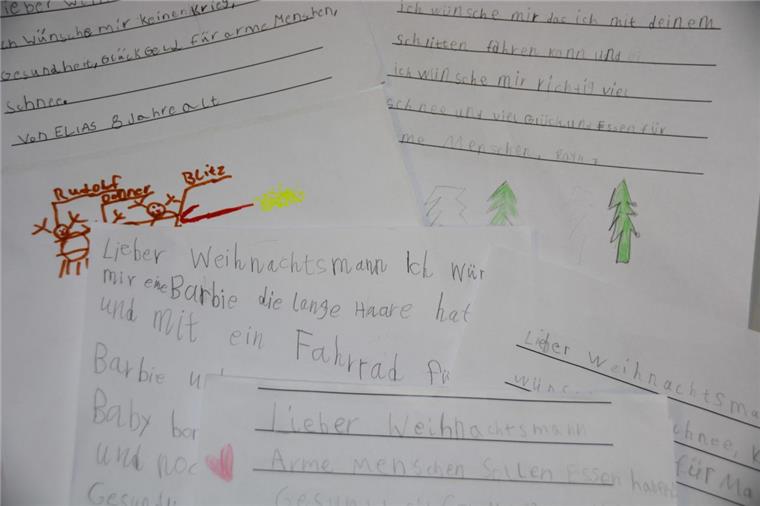 ich wünsche mir keinen Krieg,
Gesundheit, Glück Geld für arme Menschen,
Schnee.
Von ELIAS 8 Jahre alt
ich wünsche mir das ich mit deinem
schlitten fahren kann und
ich wünsche mir richtig viel
schnee und viel Glück und Essen für
me Menschen,
Rudolf
Donner
Blitz
Lieber Weihnachtsmann Ich wün
mir eine Barbie die lange Haare hat
und mit ein Fahrrad fü
Barbie u
Baby bor
und noc
Gesund
Lieber Weihnachtsma
wüns
chnee, K
für Ma
Lieber Weihnachtsmann
Arme Menschen sollen Essen haben